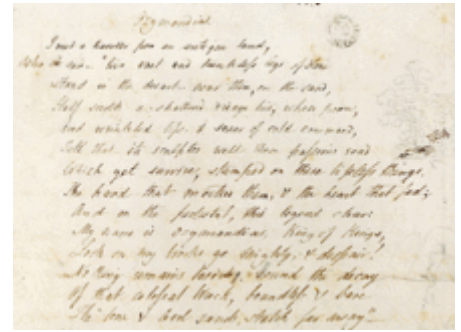 Ozymandias.
I met a traveller from an antique land,
Who said "two vast and trunkless legs of stone
Stand in the desart near them, on the sand,
Half sunk a shattered visage lies, whose frown,
And wrinkled lips, & sneer of cold command,
Tell that its sculptor well those passions read
Which yet survive, stamped on these lifeless things,
The hand that mocked them, & the heart that fed;
And on the pedestal, this legend clear:
My name is Ozymandias, King of Kings,
Look on my works ye mighty, & despair!
No thing remains beside. Round the decay
Of that colossal Wreck, boundless & bare
The lone & level sands stretch far away"